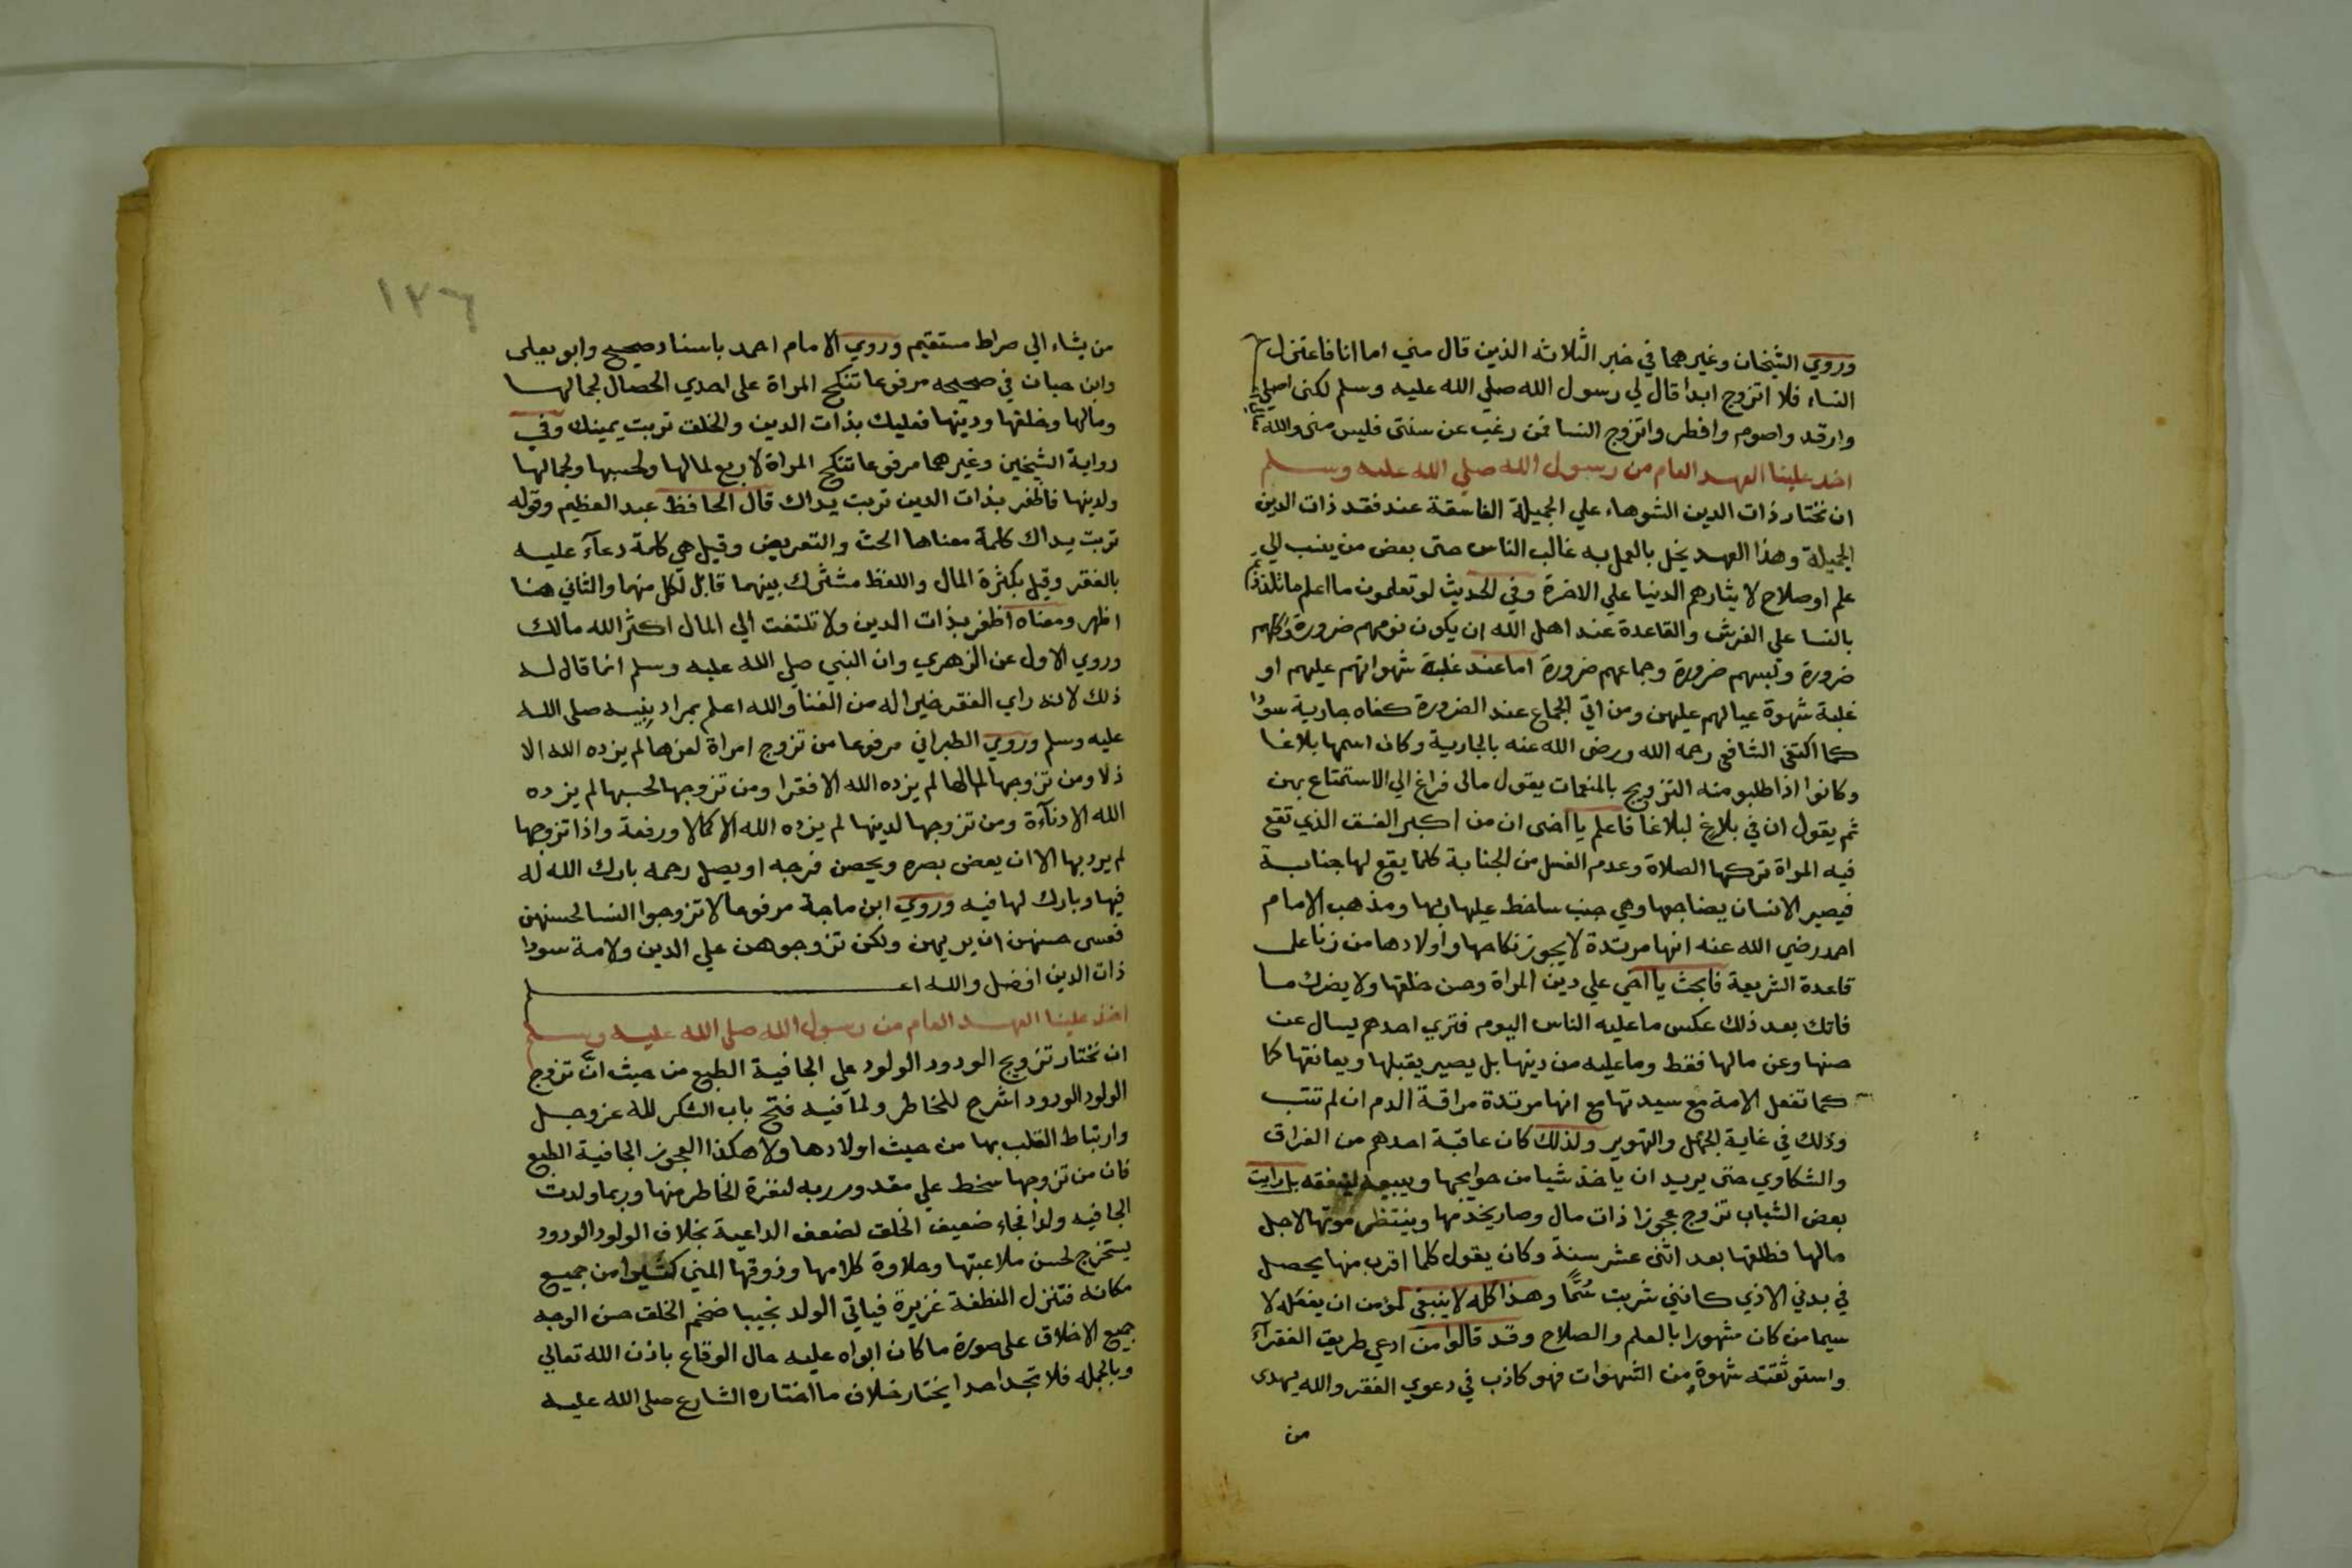 وروي الشيخان وغيرهما في خبر الثلاثه الذين قال مني اما انا فاعتزل
النساء فلا اتزوج ابدا قال لي رسول الله صلي الله عليه وسلم لكني اصلي
وارقد واصوم وافطر واتزوج النسا فمن رغب عن سنتي فليس مني والله
اخذ علينا العهد العام من رسول الله صلي الله عليه وسلم
ان نختار ذات الدين الشوهاء علي الجميلة الفاسقة عند فقد ذات الدين
الجميلة وهذا العهد يخل بالعمل به غالب الناس حتي بعض من ينسب الي
علم او صلاح لايثارهم الدنيا علي الاخرة وفي الحديث لو تعلمون ما اعلم ما تلذذتم
بالنسا علي الفرش والقاعدة عند اهل الله ان يكون نومهم ضرورة واكلهم
ضرورة ولبسهم ضرورة وجماعهم ضرورة اما عند غلبة شهواتهم عليهم او
غلبة شهوة عيالهم عليهن ومن اتي الجماع عند الضرورة كفاه جارية سودا
كما اكتفي الشافعي رحمه الله ورضي الله عنه بالجارية وكان اسمها بلاغا
وكانوا اذا طلبو منه التزويج بالمنعمات يقول مالي فراغ الي الاستمتاع بهن
ثم يقول ان في بلاغ لبلاغا فاعلم يا اخي ان من اكبر الفسق الذي تقع
فيه المراة تركها الصلاة وعدم الغسل من الجنابة كلما يقع لها جنابة
فيصير الانسان يضاجعها وهي جنب ساخط عليها ربها ومذهب الامام
احمد رضي الله عنه انها مرتدة لا يجوز نكاحها واولادها من زنا علي
قاعدة الشريعة فابحث يا اخي علي دين المراة وحسن خلقها ولا يضرك ما
فاتك بعد ذلك عكس ما عليه الناس اليوم فتري احدهم يسال عن
حسنها وعن مالها فقط وما عليه من دينها بل يصير يقبلها ويعانقها كما
كما تفعل الامة مع سيدتها مع انها مرتدة مراقة الدم ان لم تتب
وذلك في غاية الجهل والتهوير ولذلك كان عاقبة احدهم من الفراق
والشكاوي حتي يريد ان ياخذ شيا من حوايجها ويبيعه لينفقه بل رايت
بعض الشباب تزوج عجوزا ذات مال وصار يخدمها وينتظر موتها لاجل
مالها فطلقها بعد اثني عشر سنة وكان يقول كلما اقرب منها يحصل
في بدني الاذي كانني شربت سُمًّا وهذا كله لا ينبغي لمومن ان يفعله لا
سيما من كان مشهورا بالعلم والصلاح وقد قالوا من ادعي طريق الفقرآء
واستوثقته شهوة من الشهوات فهو كاذب في دعوي الفقر والله يهدي
من
١٧٦
من يشاء الي صراط مستقيم وروي الامام احمد باسناد صحيح وابو يعلي
وابن حبان في صحيحه مرفوعا تنكح المراة علي احدي الخصال لجمالها
ومالها وخلقها ودينها فعليك بذات الدين والخلق تربت يمينك وفي
رواية الشيخين وغيرهما مرفوعا تنكح المراة لاربع لمالها ولحسبها ولجمالها
ولدينها فاظفر بذات الدين تربت يداك قال الحافظ عبد العظيم وقوله
تربت يداك كلمة معناها الحث والتعريض وقيل هي كلمة دعآء عليه
بالفقر وقيل بكثرة المال واللفظ مشترك بينهما قابل لكل منهما والثاني هنا
اظهر ومعناه اظفر بذات الدين ولا تلتفت الي المال اكثر الله مالك
وروي الاول عن الزهري وان النبي صلي الله عليه وسلم انما قال له
ذلك لانه راي الفقر خيرا له من الغنا والله اعلم بمراد نبيه صلي الله
عليه وسلم وروي الطبراني مرفوعا من تزوج امراة لعزها لم يزده الله الا
ذلا ومن تزوجها لمالها لم يزده الله الا فقرا ومن تزوجها لحسبها لم يزده
الله الا دنآءة ومن تزوجها لدينها لم يزده الله الا كمالا ورفعة واذا تزوجها
لم يرد بها الا ان يغض بصره ويحصن فرجه او يصل رحمه بارك الله له
فيها وبارك لها فيه وروي ابن ماجة مرفوعا لا تزوجوا النسا لحسنهن
فعسي حسنهن ان يرديهن ولكن تزوجوهن علي الدين ولامة سودا
ذات الدين افضل والله اعلم
اخذ علينا العهد العام من رسول الله صلي الله عليه وسلم
ان نختار تزويج الودود الولود علي الجافية الطبع من حيث انَّ تزوج
الولود الودود اشرح للخاطر ولما فيه فتح باب الشكر لله عز وجل
وارتباط القلب بها من حيث اولادها ولا هكذا العجوز الجافية الطبع
فان من تزوجها سخط علي مقدور ربه لنفرة الخاطر منها وربما ولدت
الجافيه ولدا فجاء ضعيف الخلق لضعف الداعية بخلاف الولود الودود
يستخرج لحسن ملاعبتها وحلاوة كلامها وذوقها المني كثيرا من جميع
مكانه فتنزل النطفة غزيرة فياتي الولد نجيبا ضخم الخلق حسن الوجه
جميع الاخلاق علي صورة ما كان ابواه عليه حال الوقاع باذن الله تعالي
وبالجمله فلا تجد احدا يختار خلاف ما اختاره الشارع صلي الله عليه